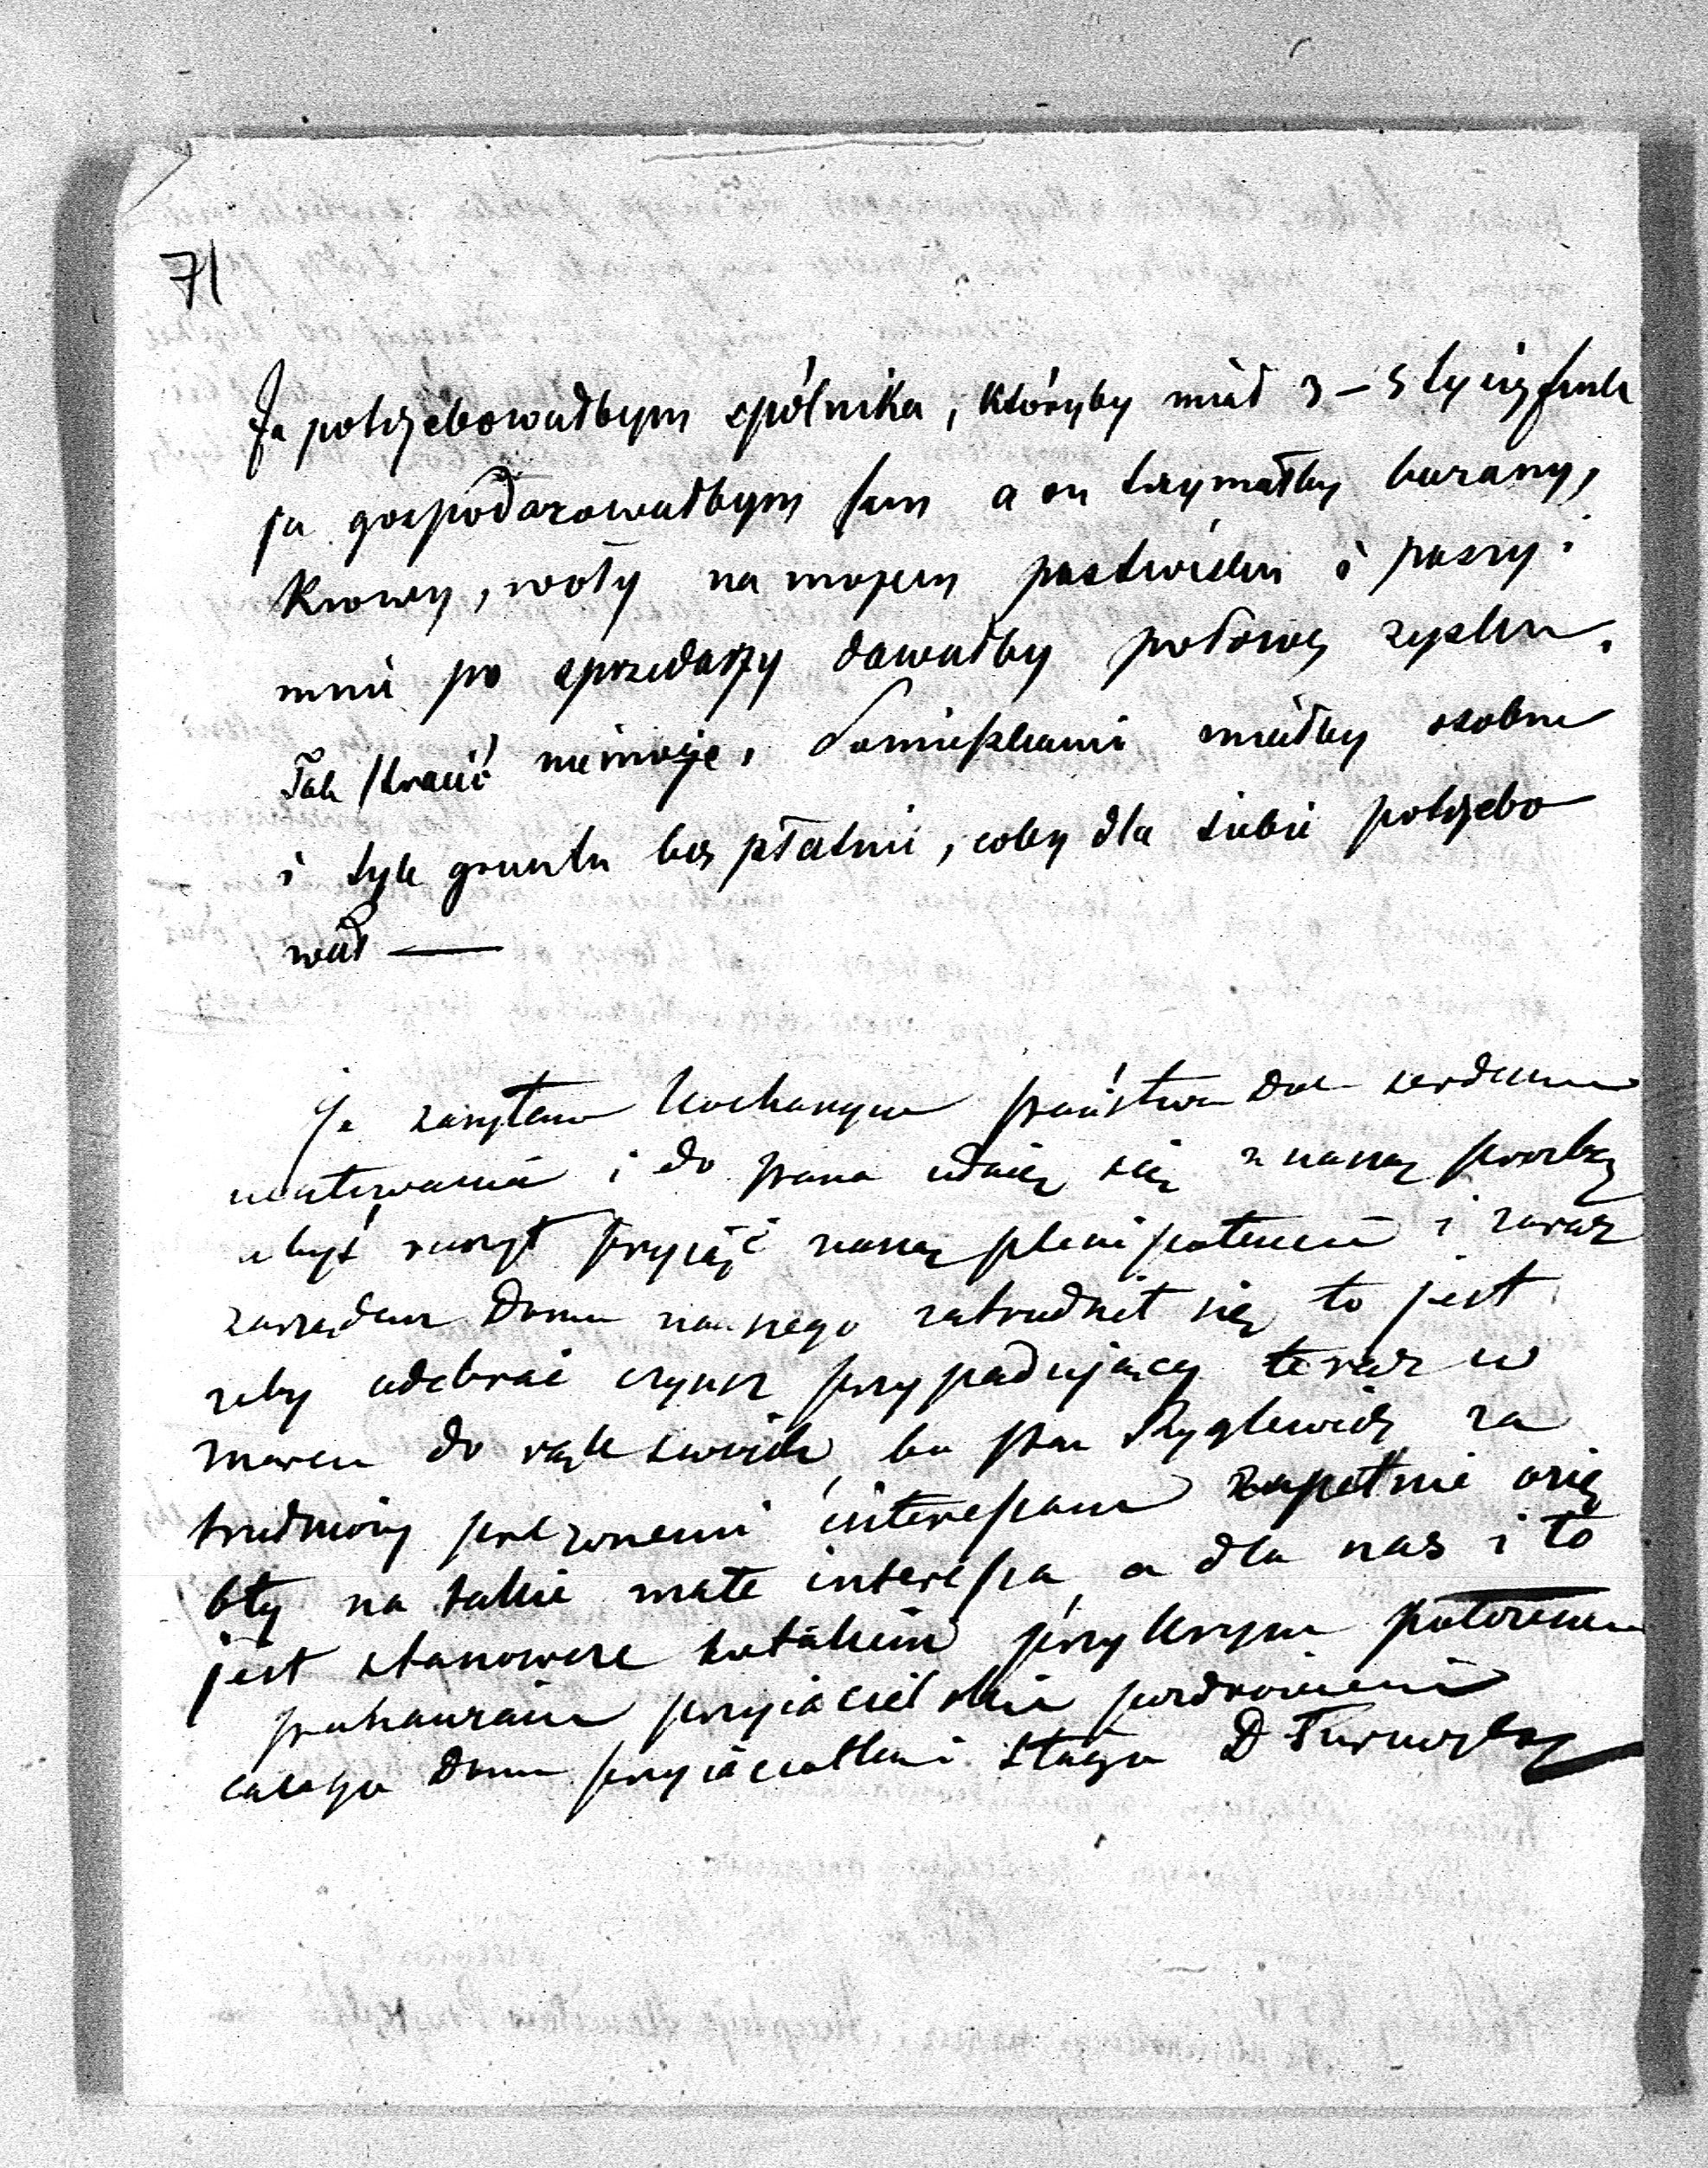 71
Ja potrzebowałbym spólnika, któryby miał 3 – 5 tysięcy
ja gospodarowałbym sam a on trzymałby barany,
krowy, woły na mojem pastwisku i paszy.
mnie po sprzedaży dawałby połowę zysku.
Tak stracić nie może, Pomieszkanie miałby osobne
i tyle gruntu bez płatnie, coby dla siebie potrzebo
wał —
Ja zasyłam kochanym państwu serdeczne
i do pana udaję się z naszą prozbą
abyś raczył przyjąć naszą plenipotencie i zaraz
zarządem domu naszego zatrudnił się to jest
zeby odebrać czynsz przypadający teraz w
marcu do rąk swoich, bo pan Ryglewicz za
trudniony interesami zupełnie ozię
bły na takie małe interesa a dla nas i to
jest przykrym położeniu
przyjacielskie pozdrowienie
całego domu przyjaciołka i sługa D